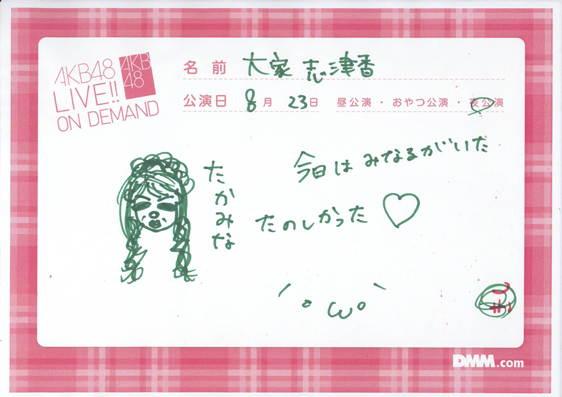 AKB48
LIVE!!
ON DEMAND
AKB
48
名前 大家 志津香
公演日 8月 23日 昼公演・おやつ公演・夜公演
今日は みなるがいた
たのしかった ♡
たかみな
´ °ω° `
DMM.com